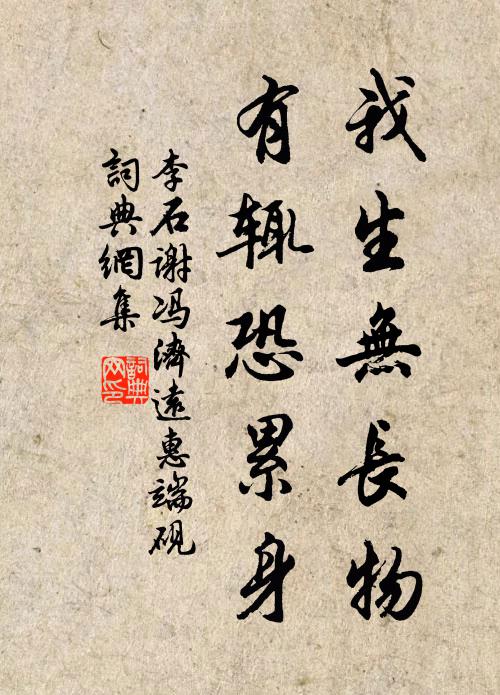 我生無長物
有辄恐累身
李石谢冯濟遠惠端砚
詞典網集
詞典
网印